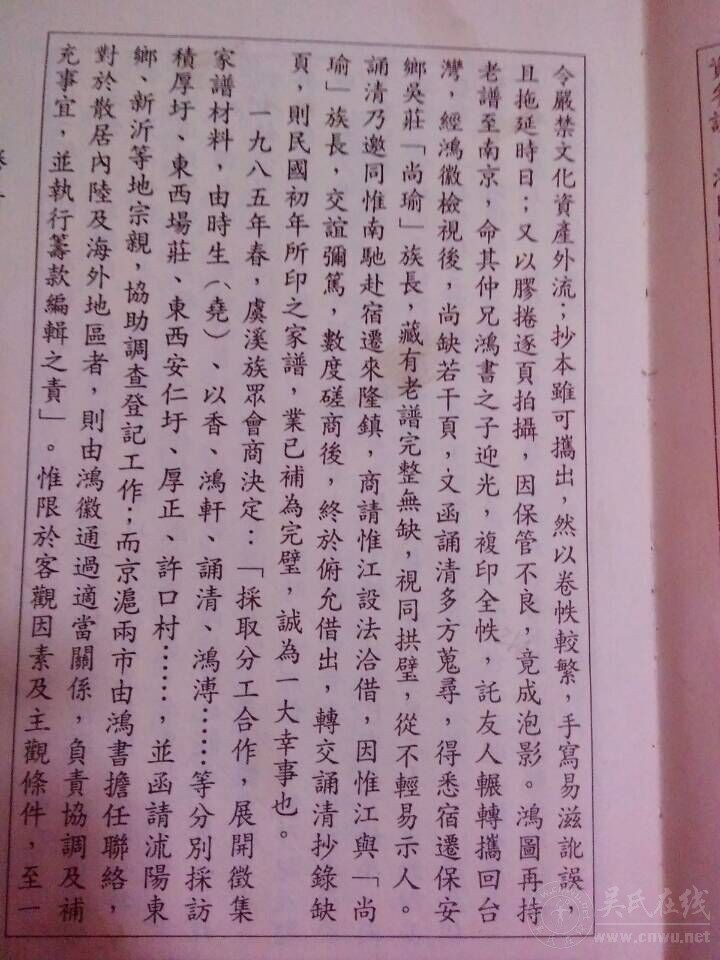 令嚴禁文化資產外流；抄本雖可攜出，然以卷帙較繁，手寫易滋訛誤，
且拖延時日；又以膠捲逐頁拍攝，因保管不良，竟成泡影。鴻圖再持
老譜至南京，命其仲兄鴻書之子迎光，複印全帙，託友人輾轉攜回台
灣，經鴻徽檢視後，尚缺若干頁，又函誦清多方蒐尋，得悉宿遷保安
鄉吳莊「尚瑜」族長，藏有老譜完整無缺，視同拱璧，從不輕易示人。
誦清乃邀同惟南馳赴宿遷來隆鎮，商請惟江設法洽借，因惟江與「尚
瑜」族長，交誼彌篤，數度磋商後，終於俯允借出，轉交誦清抄錄缺
頁，則民國初年所印之家譜，業已補為完璧，誠為一大幸事也。
一九八五年春，虞溪族眾會商決定：「採取分工合作，展開徵集
家譜材料，由時生（堯）、以香、鴻軒、誦清、鴻溥……等分別採訪
積厚圩、東西場莊、東西安仁圩、厚正、許口村……，並函請沭陽東
鄉、新沂等地宗親，協助調查登記工作；而京滬兩市由鴻書擔任聯絡，
對於散居內陸及海外地區者，則由鴻徽通過適當關係，負責協調及補
充事宜，並執行籌款編輯之責」。惟限於客觀因素及主觀條件，至一
吴氏在线
www.cnwu.net